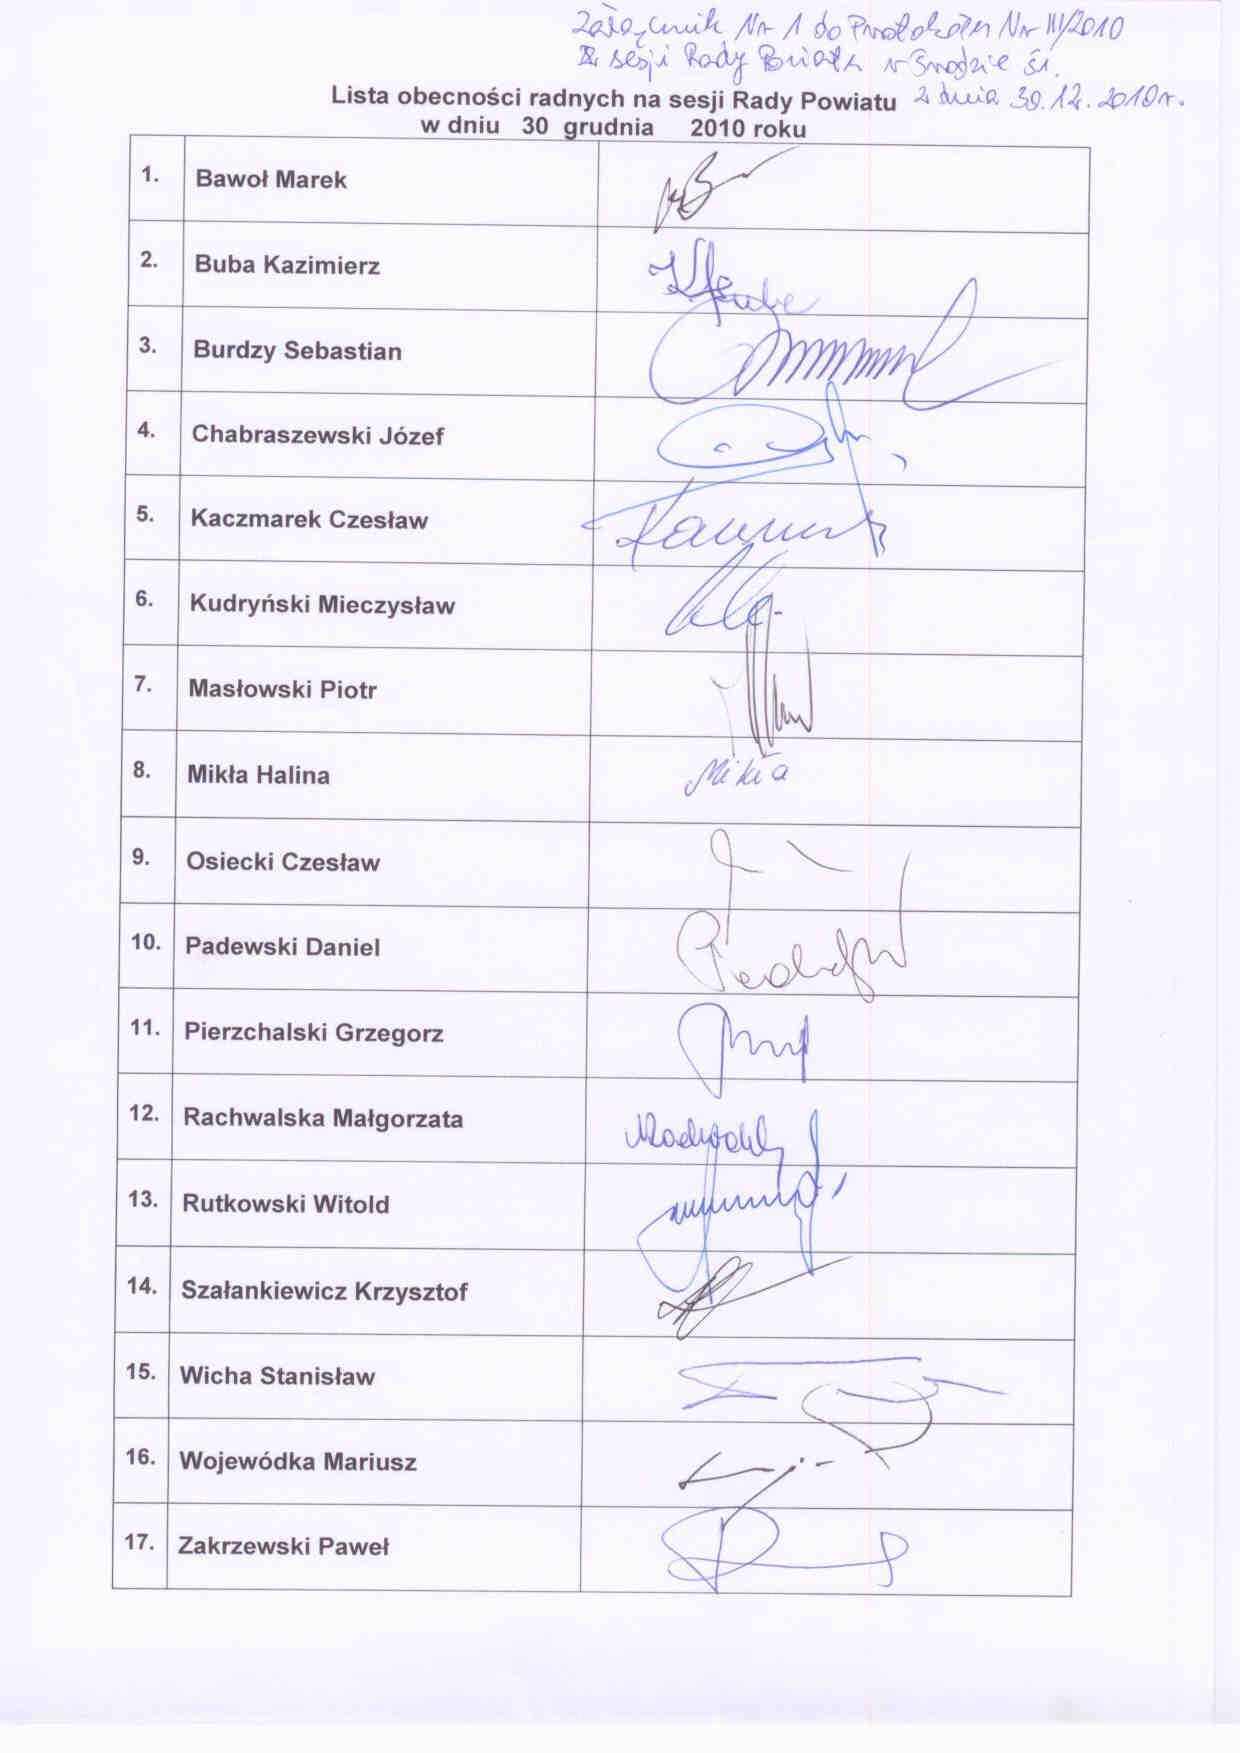 Załącznik Nr 1 do Protokółu Nr III/2010
sesji Rady Powiatu w Środzie Śl.
z dnia 30.12.2010r.
Lista obecności radnych na sesji Rady Powiatu
w dniu 30 grudnia 2010 roku
1. Bawoł Marek
2. Buba Kazimierz
3. Burdzy Sebastian
4. Chabraszewski Józef
5. Kaczmarek Czesław
6. Kudryński Mieczysław
7. Masłowski Piotr
8. Mikła Halina Mikła
9. Osiecki Czesław
10. Padewski Daniel
11. Pierzchalski Grzegorz
12. Rachwalska Małgorzata
13. Rutkowski Witold
14. Szałankiewicz Krzysztof
15. Wicha Stanisław
16. Wojewódka Mariusz
17. Zakrzewski Paweł